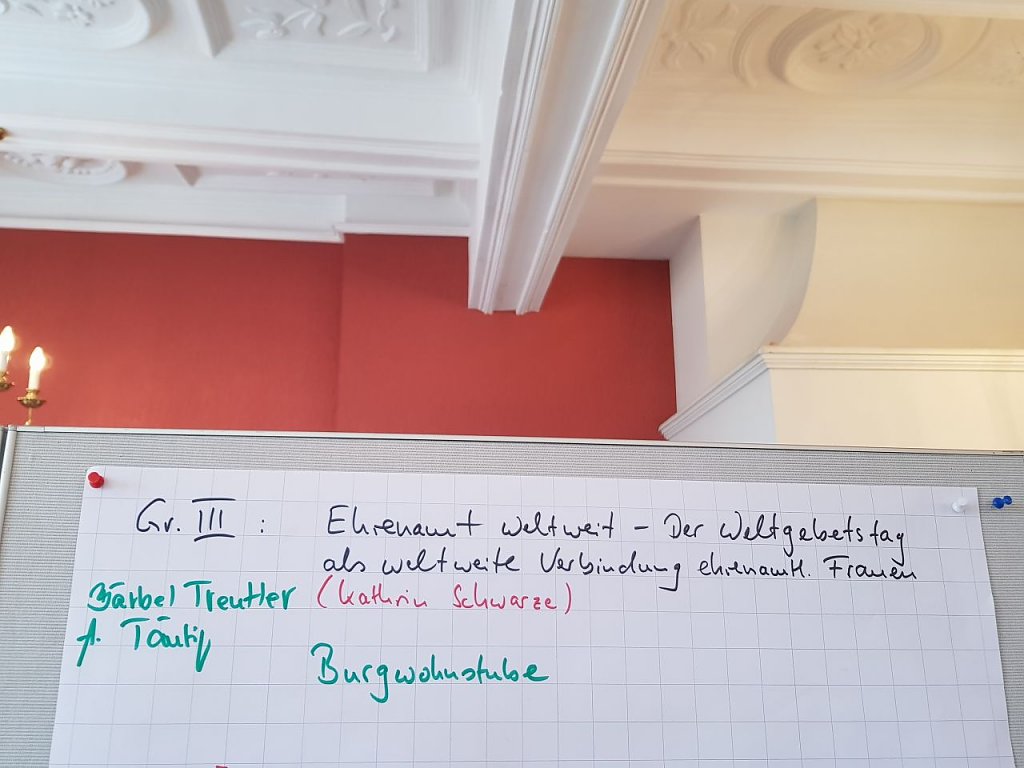 Gr. III : Ehrenamt weltweit - Der Weltgebetstag
als weltweite Verbindung ehrenamtl. Frauen
Bärbel Treutler (Kathrin Schwarze)
Burgwohnstube